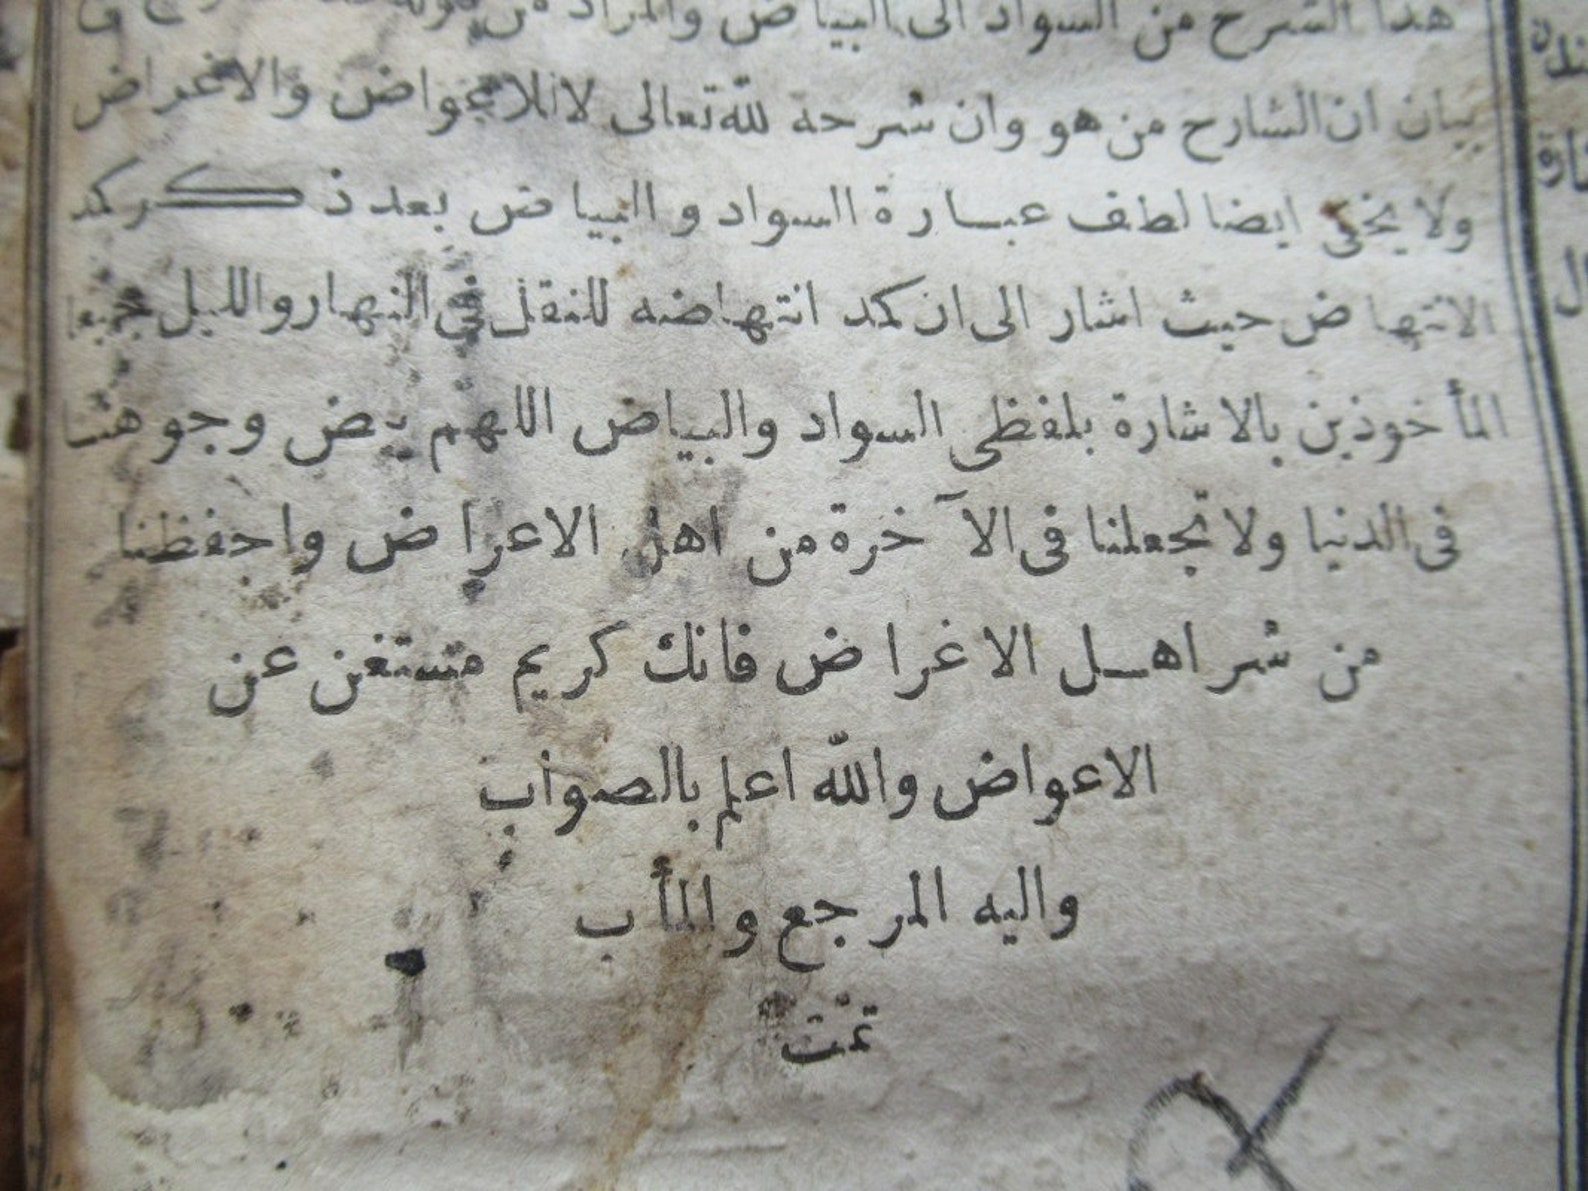 هذا الشرح من السواد الى البياض والمراد من
بيان ان الشارح من هو وان شرحه لله تعالى لا للاعواض والاغراض
ولا يخفى ايضا لطف عبارة السواد والبياض بعد ذكر كد
الانتهاض حيث اشار الى ان كد انتهاضه للنقل فى النهار والليل جميعا
المأخوذين بالاشارة بلفظى السواد والبياض اللهم بيض وجوهنا
فى الدنيا ولا تجعلنا فى الآخرة من اهل الاعراض واحفظنا
من شر اهل الاغراض فانك كريم مستغن عن
الاعواض والله اعلم بالصواب
واليه المرجع والمأب
تمت